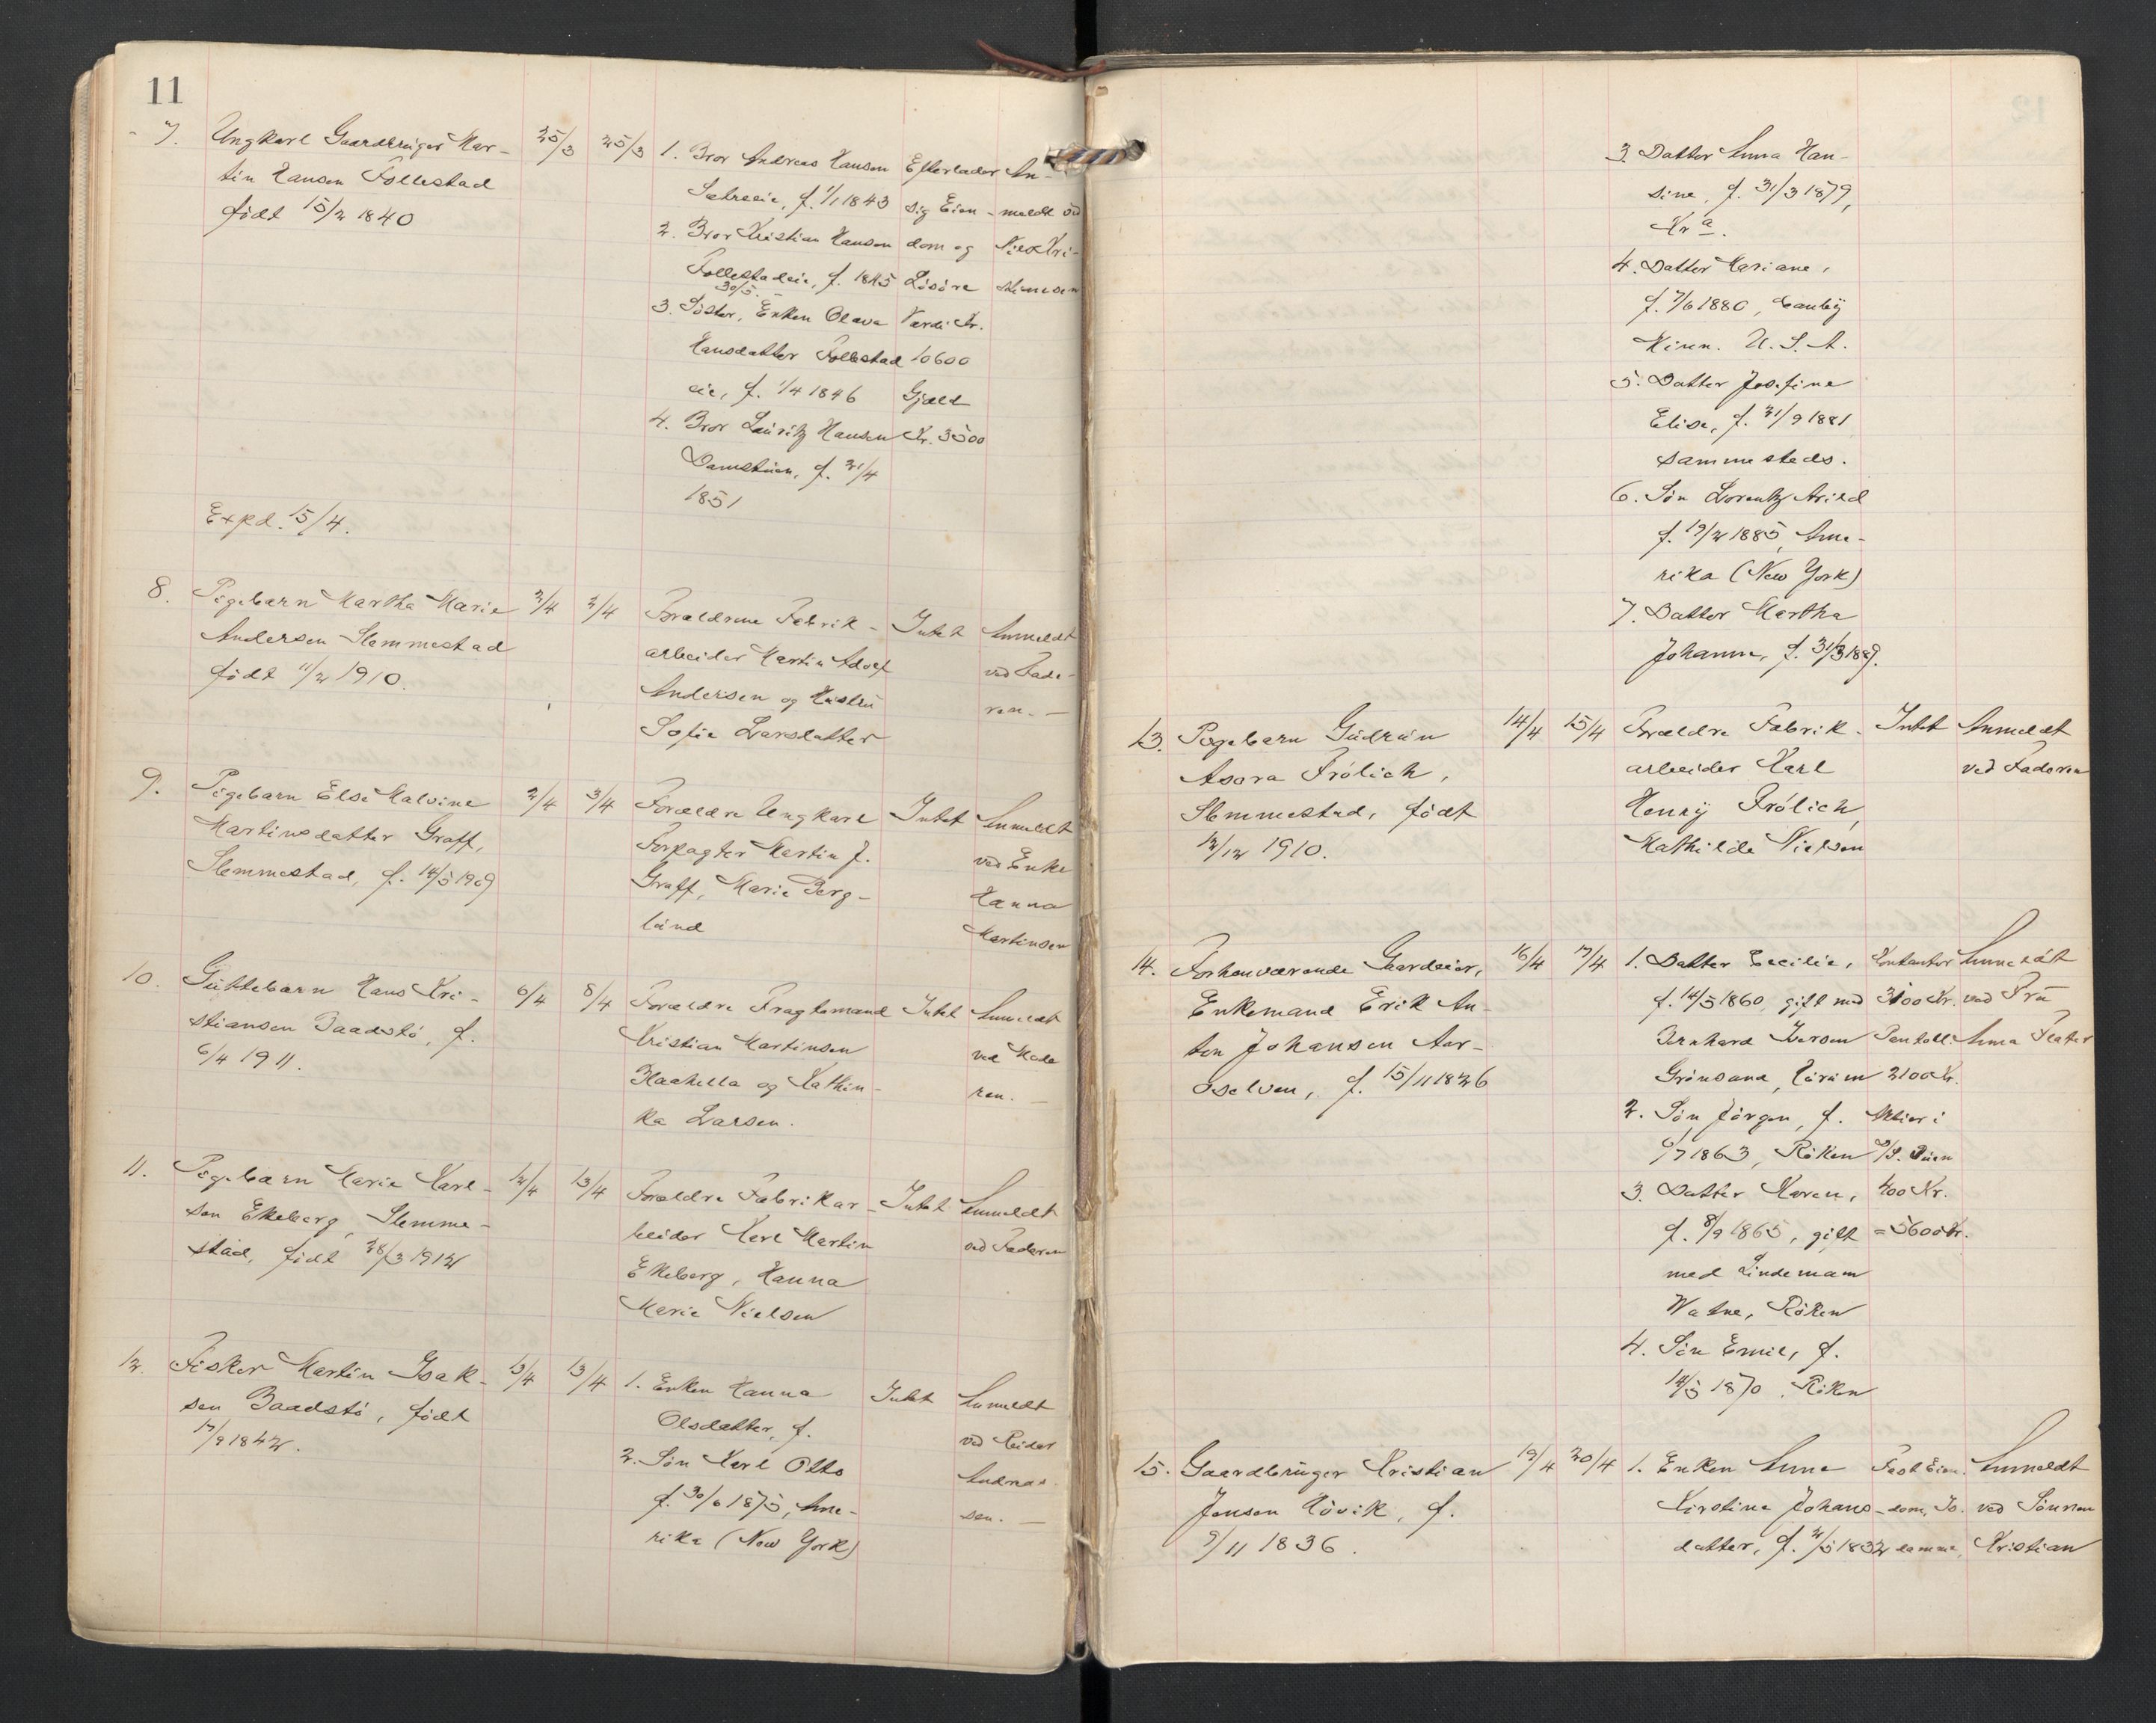 11
7. Ungkarl Gaardbruger Mar-
tin Hansen Follestad
født 15/2 1840
Expd. 15/4.
25/3
25/3
1. Bror Andreas Hansen
Sætreeie, f. 1/1 1843
2. Bror Kristian Hansen
Follestadeie, f. 1845
30/5.
3. Søster, Enken Olava
Hansdatter Follestad
eie, f. 1/4 1846
4. Bror Lauritz Hansen
Damstuen, f. 21/4
1851
Efterlader
sig Eien-
dom og
Løsøre
Værdi Kr.
10600
Gjæld
Kr. 3500
An-
meldt ved
Niels Kri-
stensen
8. Pigebarn Martha Marie
Andersen Slemmestad
født 11/2 1910.
2/4
2/4
Forældrene Fabrik-
arbeider Martin Adolf
Andersen og Hustru
Sofie Larsdatter
Intet
Anmeldt
ved Fade-
ren. —
9. Pigebarn Else Malvine
Martinsdatter Graff,
Slemmestad, f. 14/5 1909
2/4
3/4
Forældre Ungkarl
Forpagter Martin J.
Graff, Marie Berg-
lund
Intet
Anmeldt
ved Enke
Hanna
Martinsen
10. Guttebarn Hans Kri-
stiansen Baadstø, f.
6/4 1911.
6/4
8/4
Forældre Fragtemand
Kristian Martinsen
og Kathin-
ka Larsen.
Intet
Anmeldt
ved Mode
ren. —
11. Pigebarn Marie Karl-
sen Ekeberg, Slemme-
stad, født 28/3 1912
12/4
13/4
Forældre Fabrikar-
beider Karl Martin
Ekeberg, Hanna
Marie Nielsen
Intet
Anmeldt
ved Faderen
12. Fisker Martin Isak-
sen Baadstø, født
17/9 1842.
13/4
13/4
1. Enken Hanna
Olsdatter, f.
2. Søn Karl Otto
f. 30/6 1875, Ame-
rika (New York)
Intet
Anmeldt
ved Reidar
Andreas-
sen. —
3. Datter Anna Han-
sine, f. 31/3 1879,
Kra.
4. Datter Mariane,
f. 7/6 1880, Canby
Minn. U.S.A.
5. Datter Josefine
Elise, f. 21/9 1881
sammesteds.
6. Søn Lorentz Arild
f. 19/2 1885, Ame-
rika (New York)
7. Datter Martha
Johanne, f. 31/3 1889.
13. Pigebarn Gudrun
Asora Frölich,
Slemmestad, født
12/12 1910.
14/4
15/4
Forældre Fabrik-
arbeider Karl
Henry Frölich,
Mathilde Nielsen
Intet
Anmeldt
ved Faderen
14. Forhenværende Gardeier,
Enkemand Erik An-
ton Johansen Aar-
oselven, f. 15/11 1826
16/4
17/4
1. Datter Cecilie,
f. 14/5 1860, gift med
Bernhard Iversen
Grønsand, Hurum
2. Søn Jørgen, f.
6/7 1863, Røken
3. Datter Karen,
f. 8/9 1865, gift
med Lindemann
Watne, Røken
4. Søn Emil, f.
14/5 1870, Røken
Kontanter
3100 Kr.
2100 Kr.
Aktier i
400 Kr.
= 5600 Kr.
Anmeldt
ved Fru
Anna
15. Gaardbruger Kristian
Jensen Høvik, f.
9/11 1836.
19/4
20/4
1. Enken Anne
Kirstine Johans-
datter, f. 2/5 1832
Fast Eien-
dom,
Anmeldt
ved Sønnen
Kristian